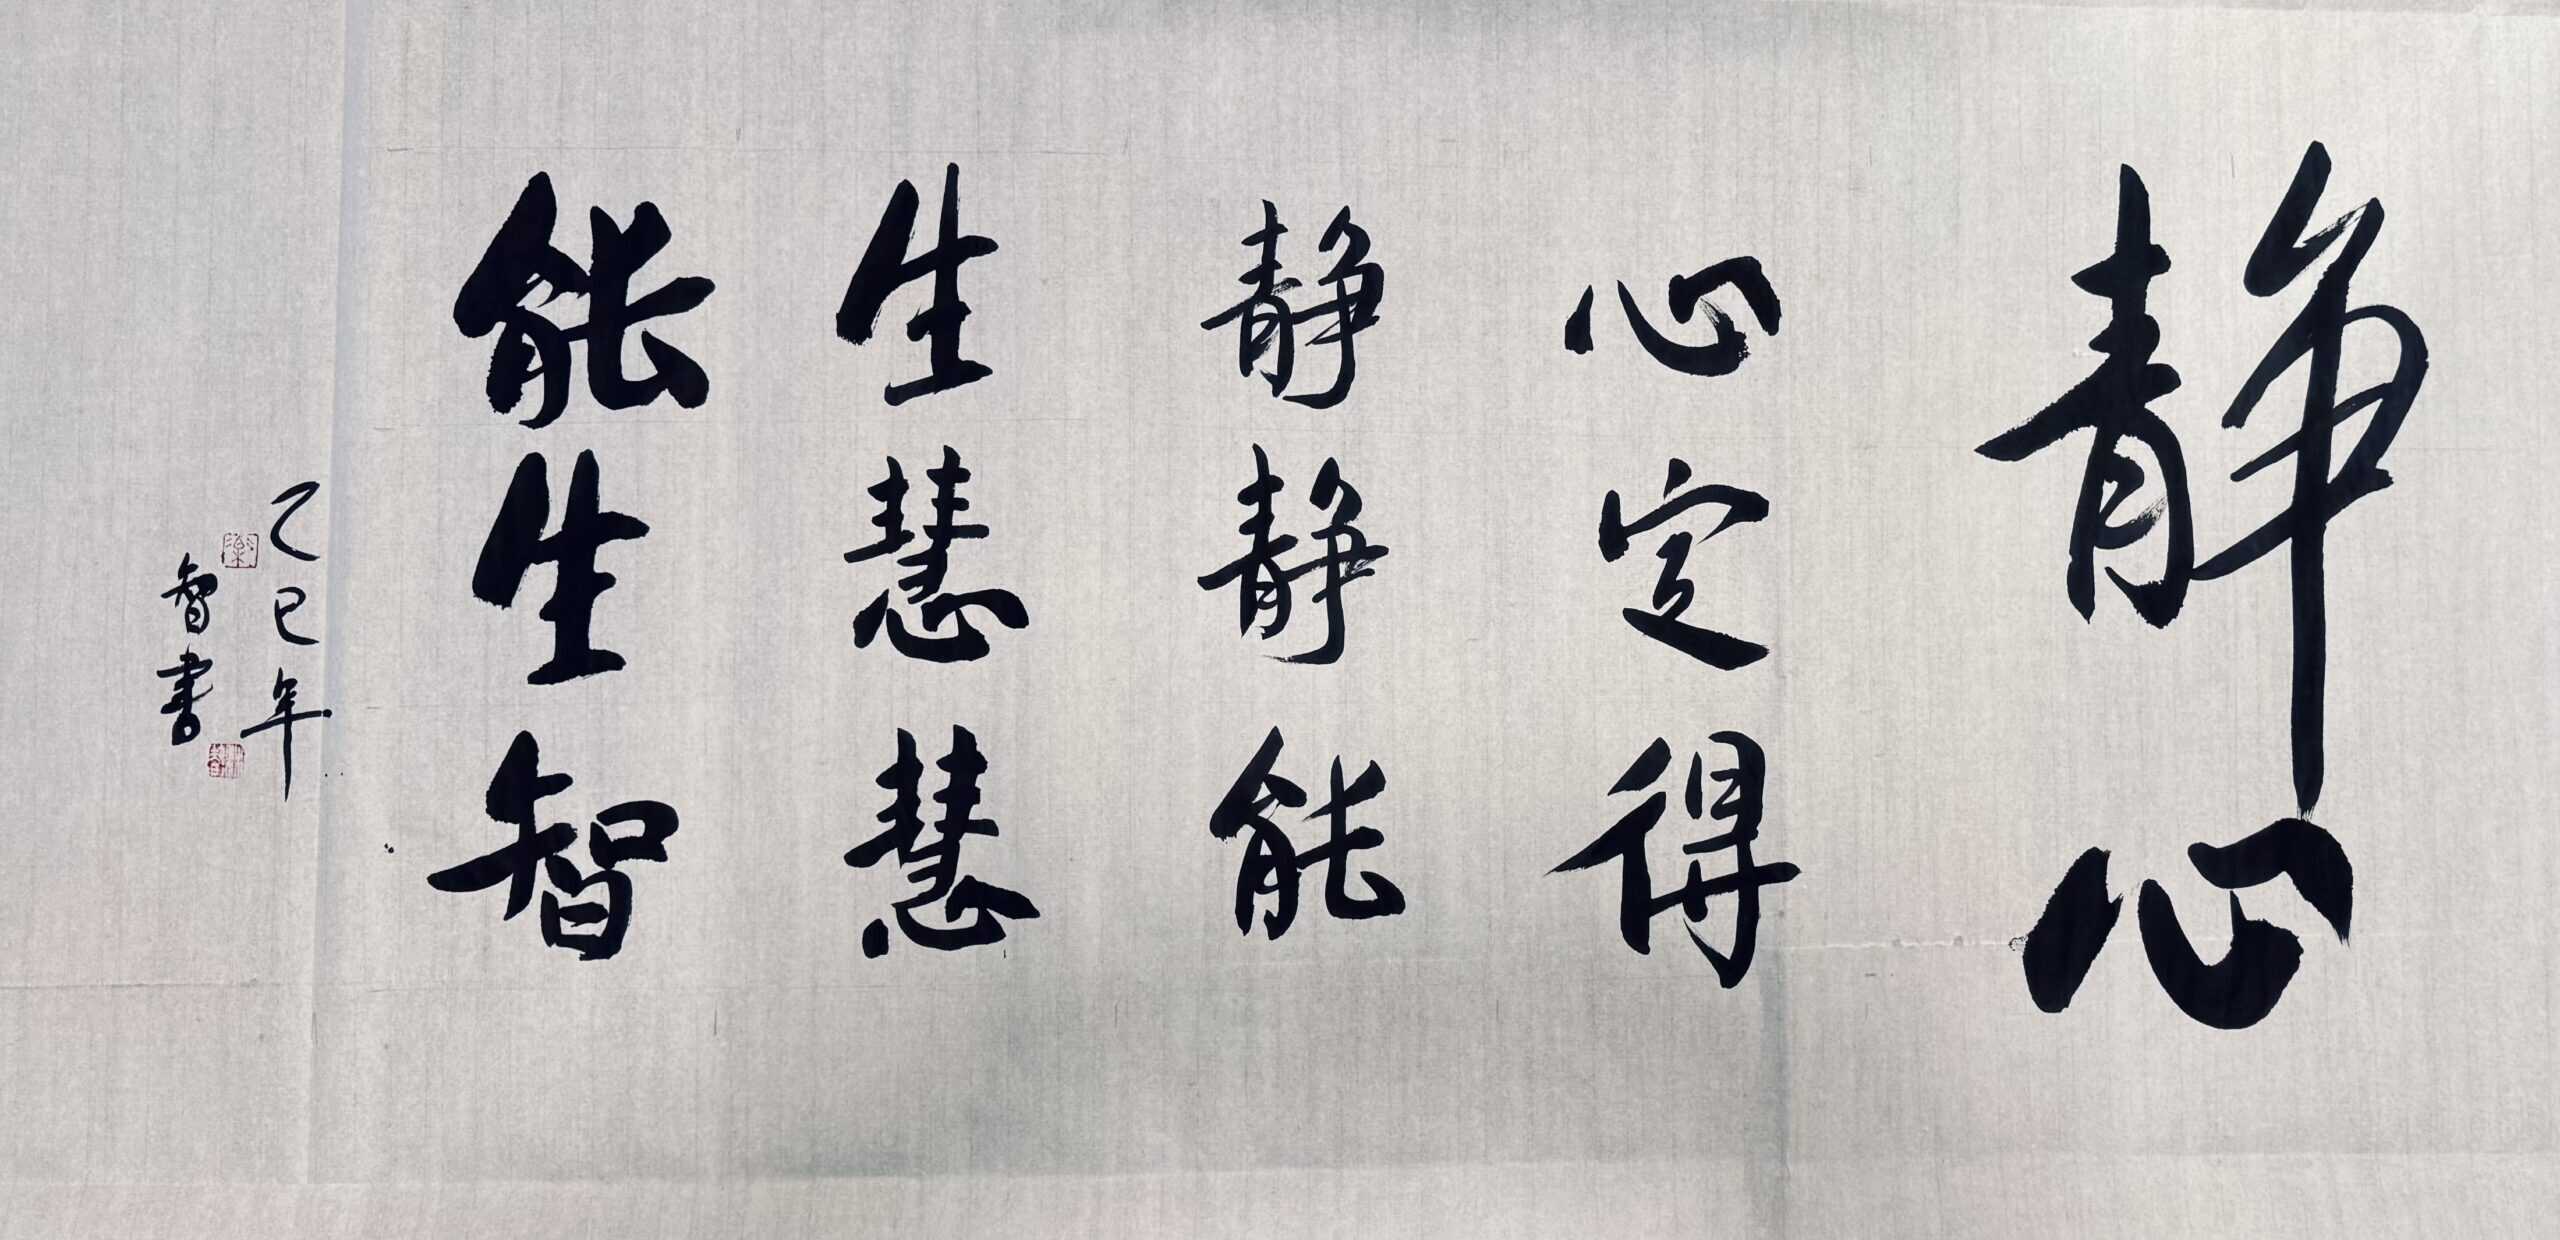 静心
心定得
静静能
生慧慧
能生智
乙巳年
智书